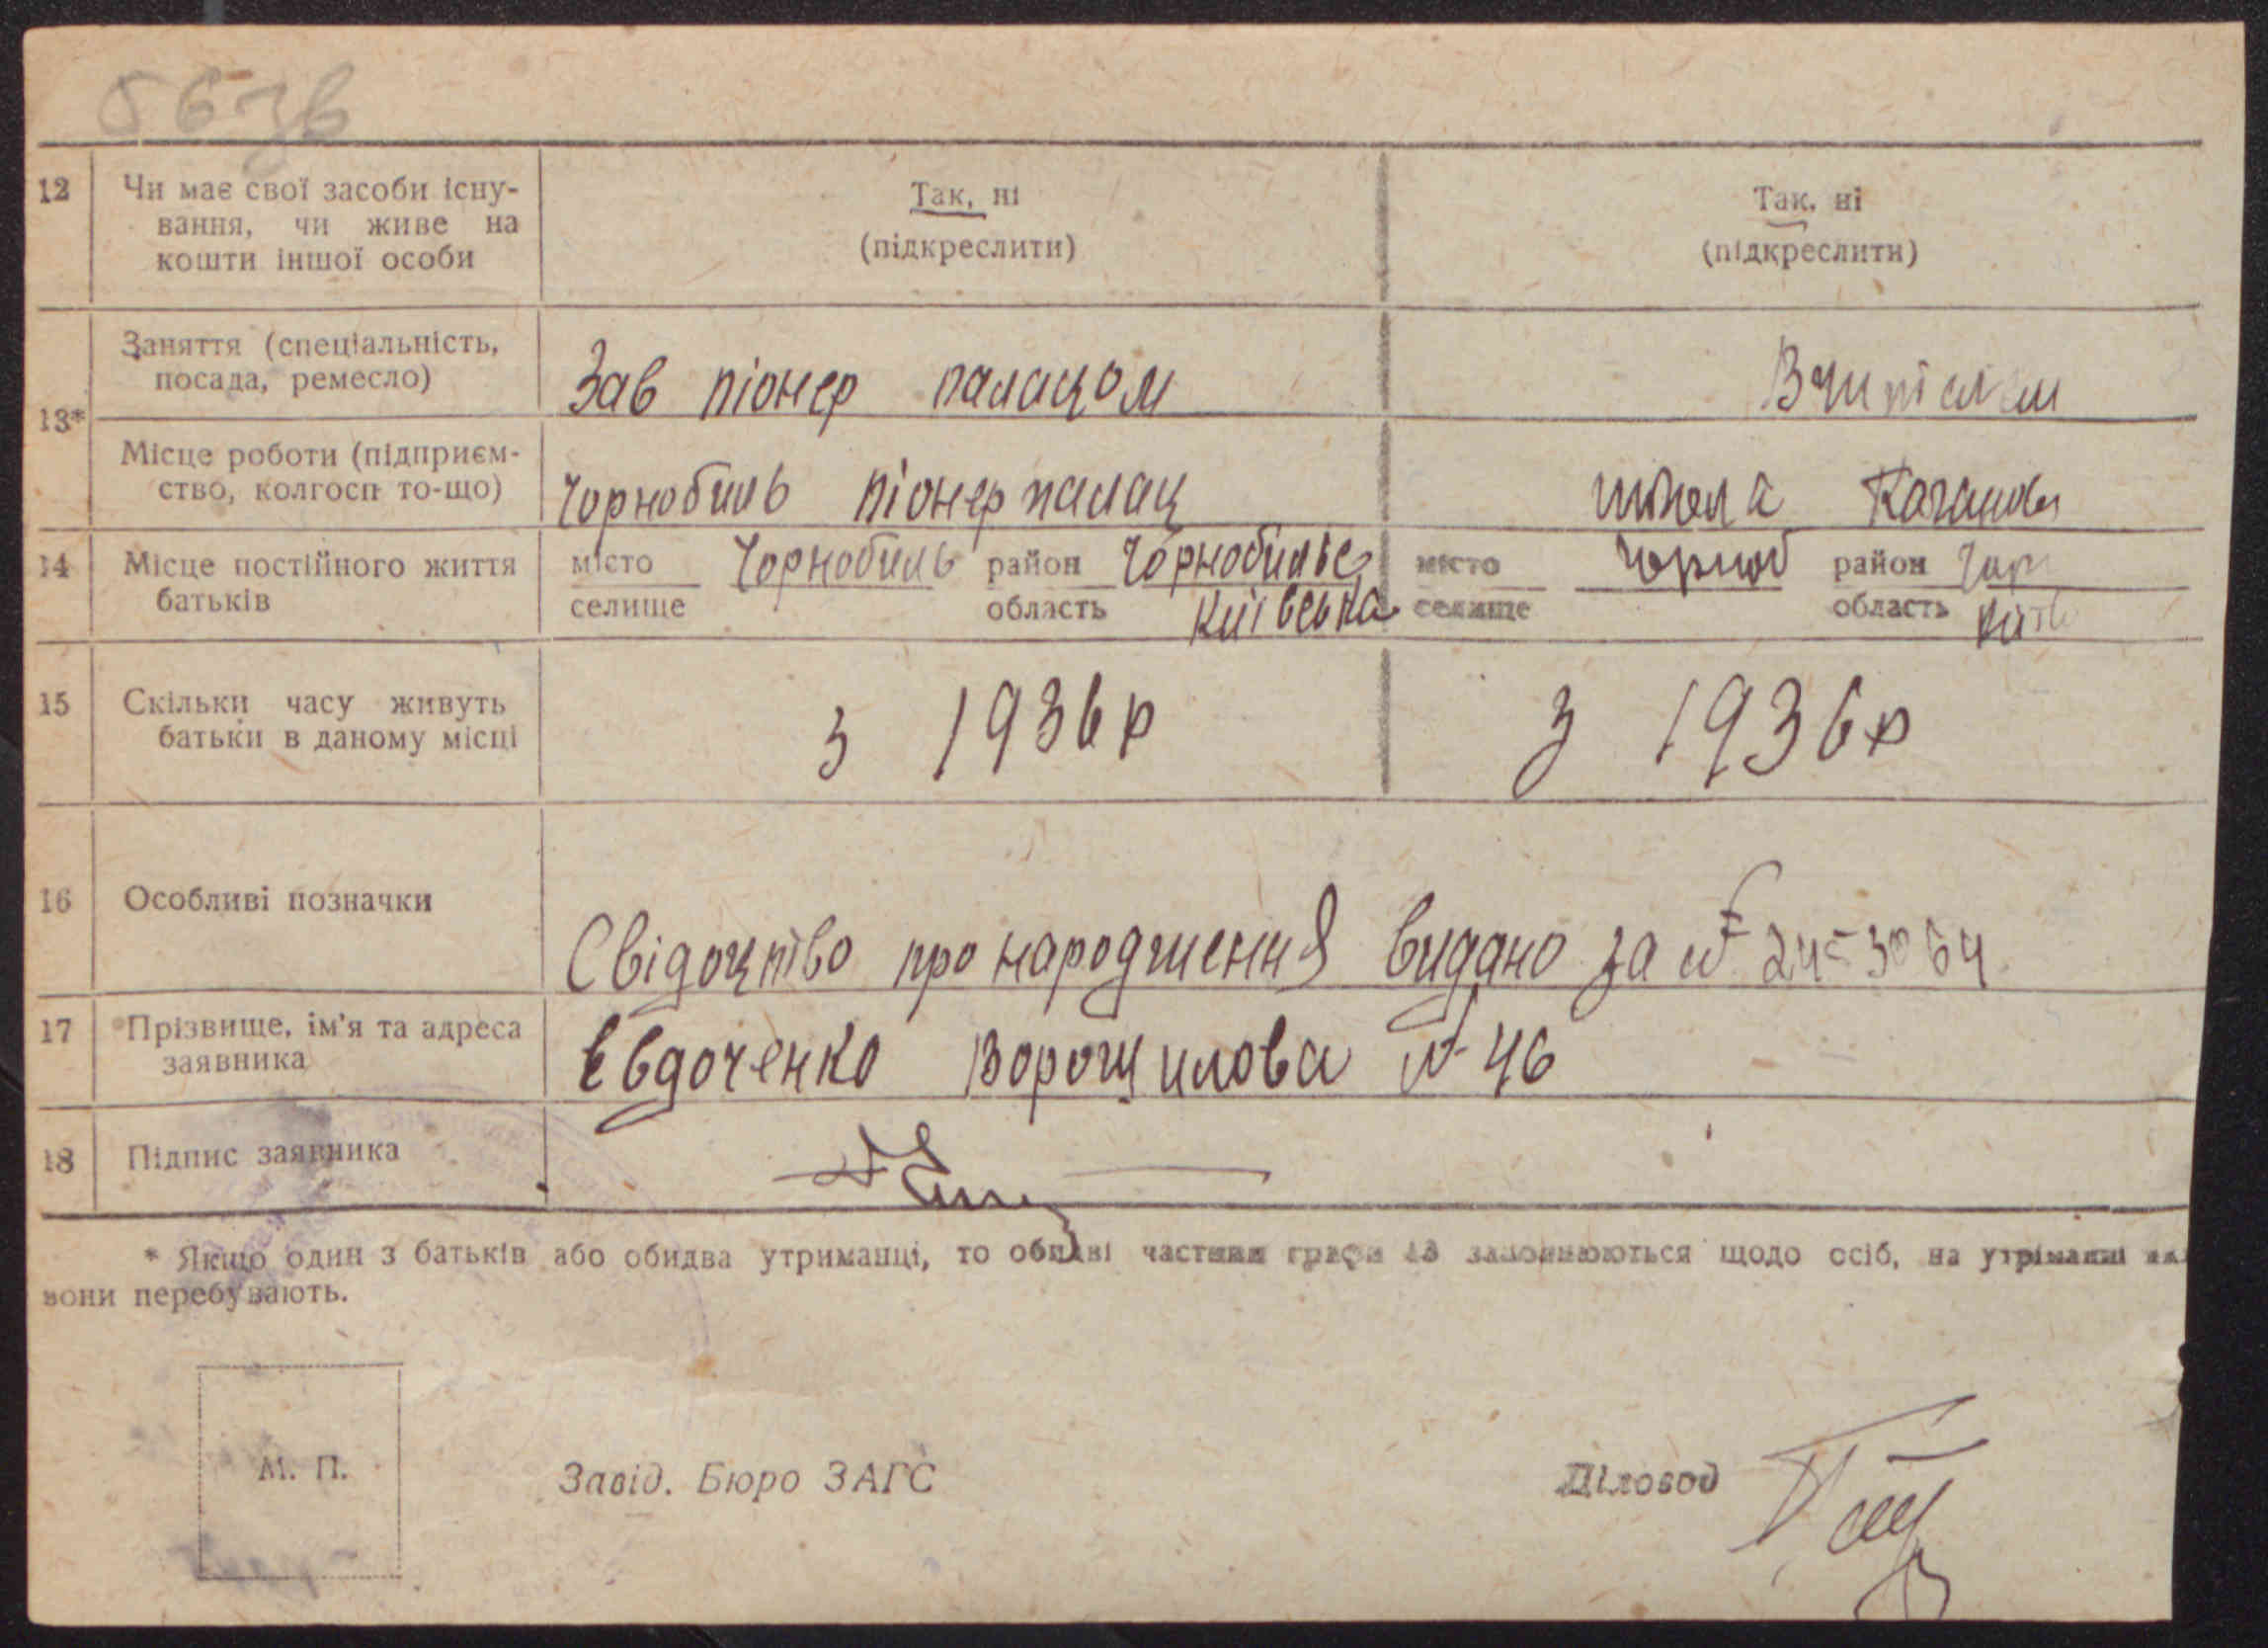 12 Чи має свої засоби існу- Так, ні Так, ні
вання, чи живе на (підкреслити) (підкреслити)
кошти іншої особи
13* Заняття (спеціальність, посада, ремесло) Зав піонер палацом
Місце роботи (підприєм-
ство, колгосп то-що) Чорнобиль піонерпалац школа
14 Місце постійного життя місто Чорнобиль район місто Чорноб район Чор
батьків селище область Київська селище область
15 Скільки часу живуть з 1936 р з 1936 р
батьки в даному місці
16 Особливі позначки
Свідоцтво про народження видано за №
17 Прізвище, ім'я та адреса
заявника Євдоченко Ворошилова № 46
18 Підпис заявника
* Якщо один з батьків або обидва утриманці, то обидві частини графи 13 заповнюються щодо осіб, на утріманні
вони перебувають.
М. П. Завід. Бюро ЗАГС Діловод